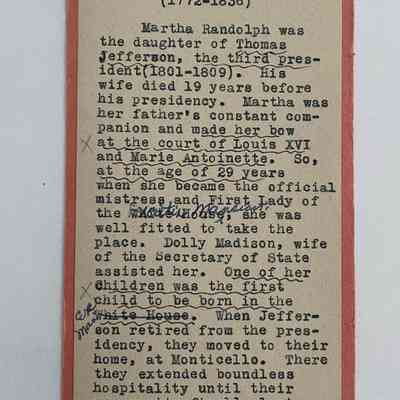 (1772-1836)
Martha Randolph was
the daughter of Thomas
Jefferson, the third pres-
ident(1801-1809). His
wife died 19 years before
his presidency. Martha was
her father's constant com-
panion and made her bow
at the court of Louis XVI
and Marie Antoinette. So,
at the age of 29 years
when she became the official
mistress and First Lady of
the White House, she was
well fitted to take the
place. Dolly Madison, wife
of the Secretary of State
assisted her. One of her
children was the first
child to be born in the
White House. When Jeffer-
son retired from the pres-
idency, they moved to their
home, at Monticello. There
they extended boundless
hospitality until their